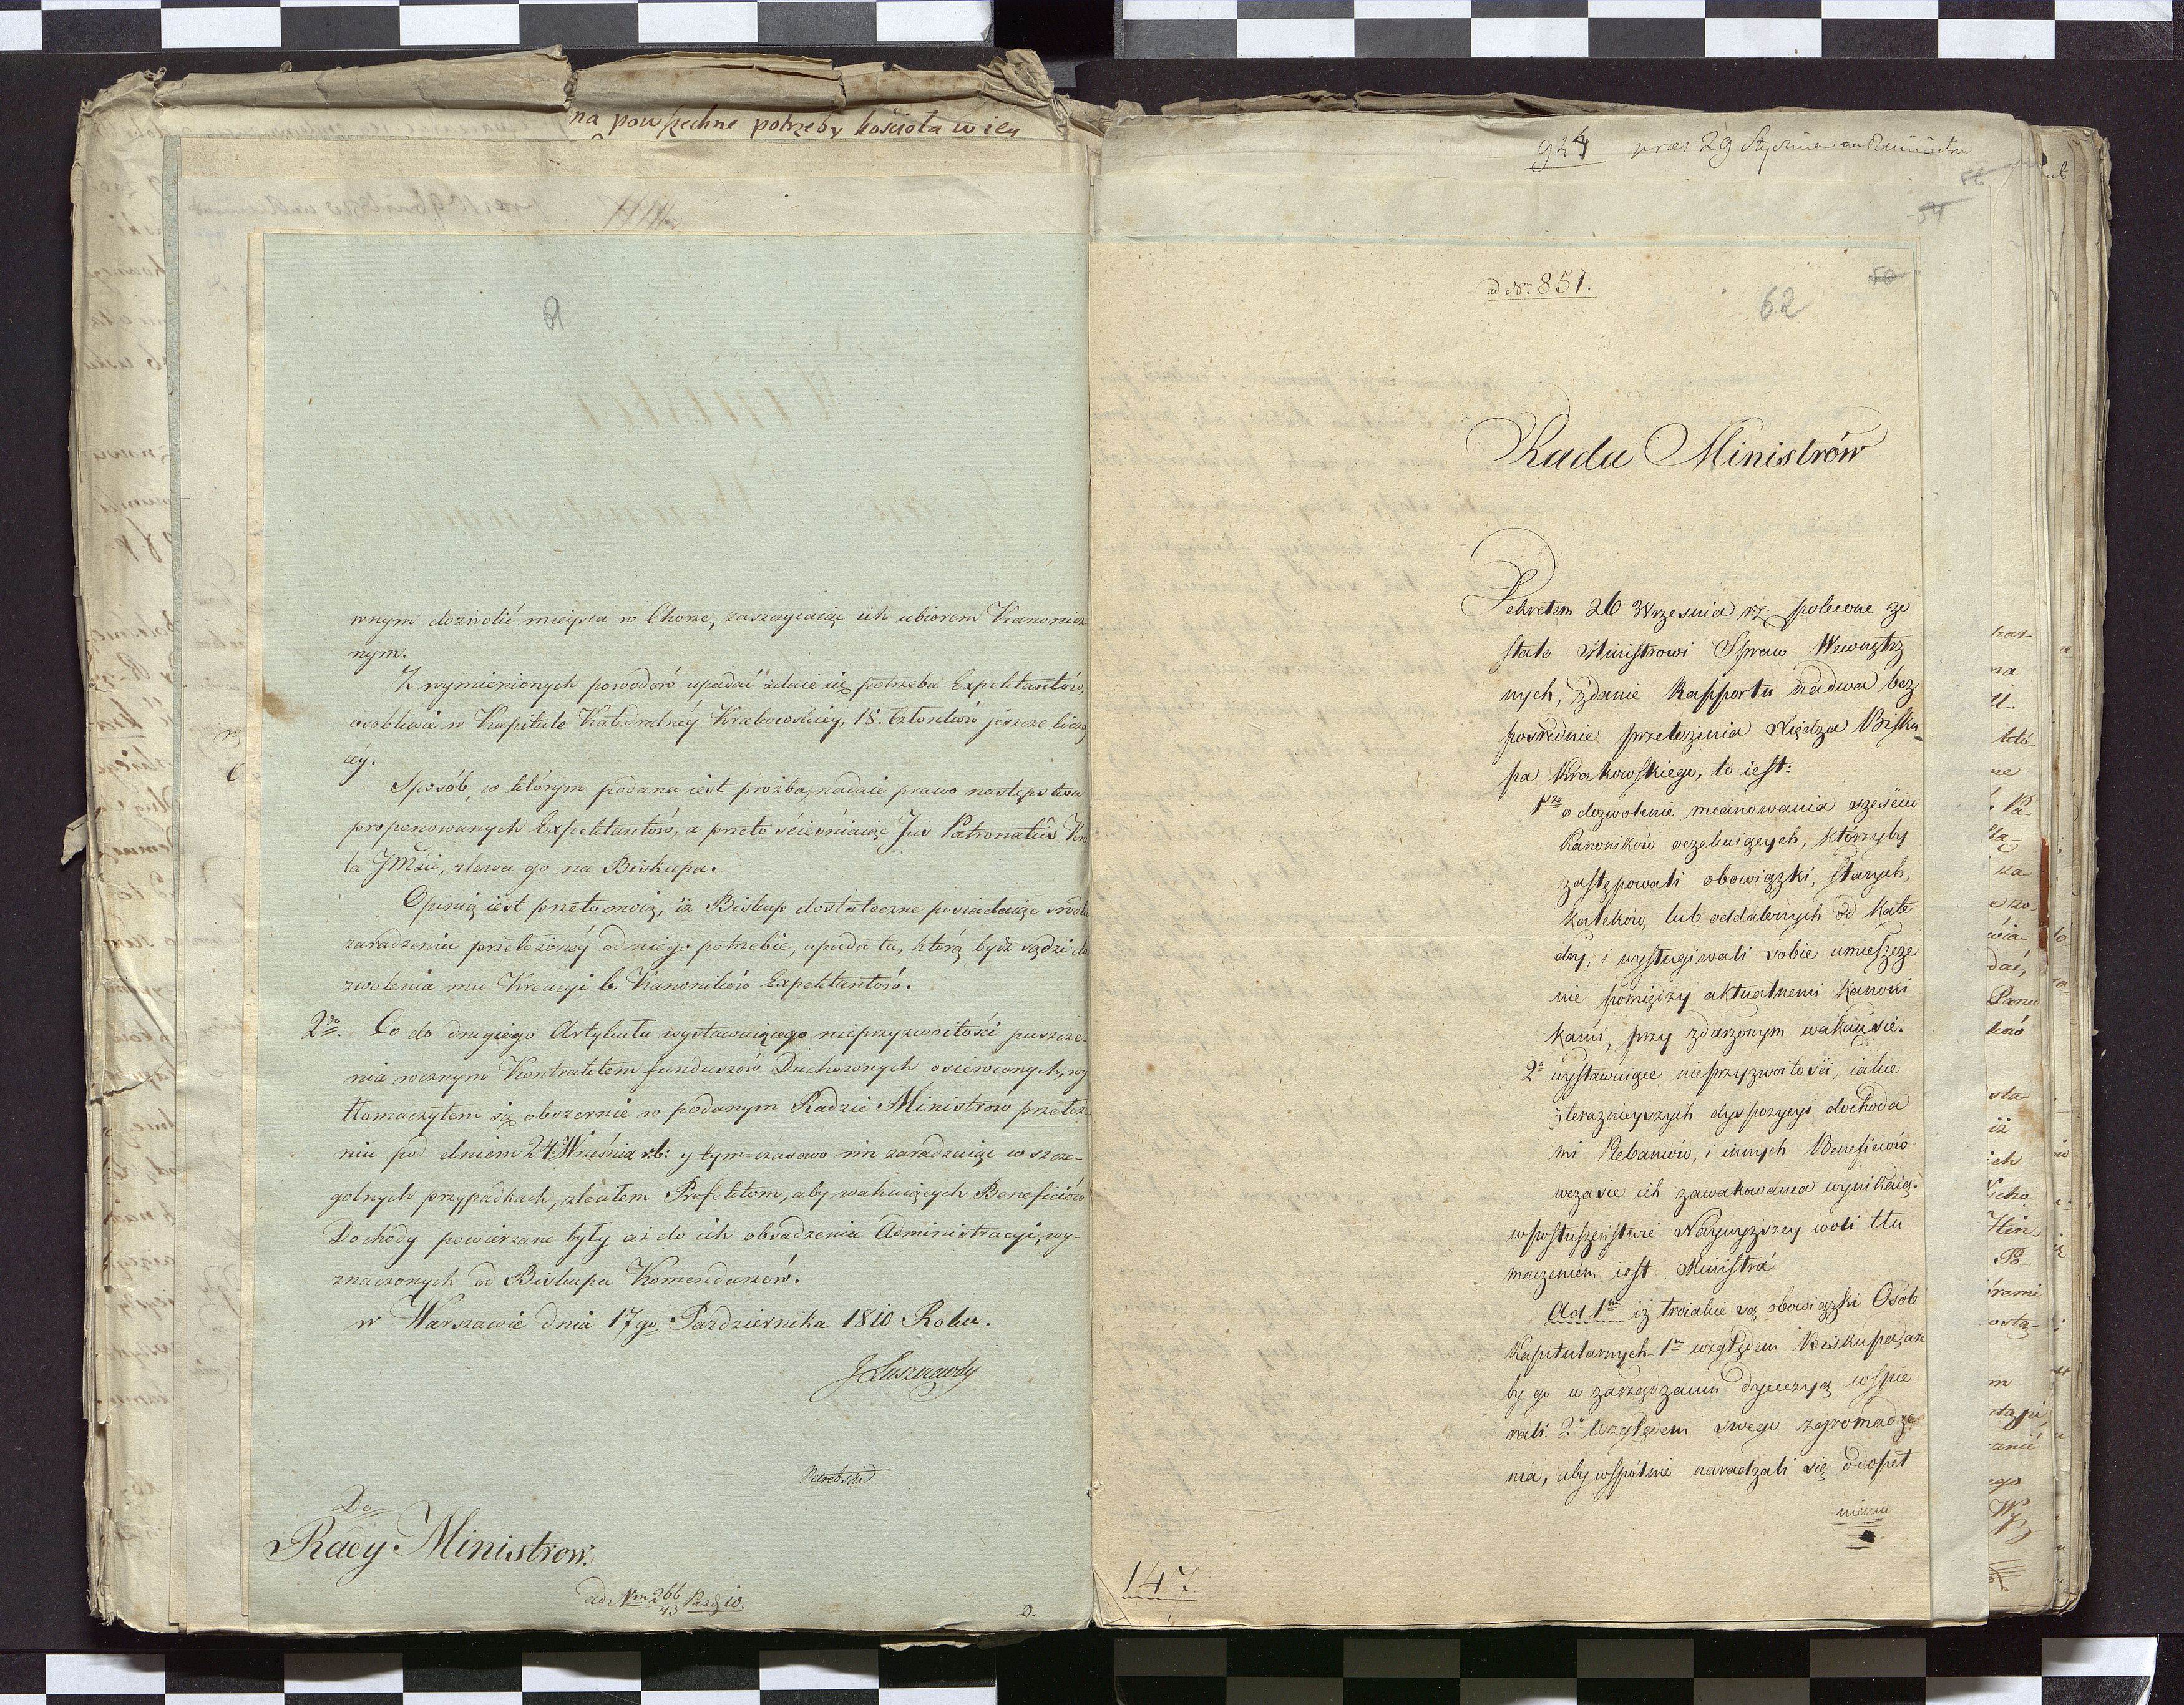 na powszechne potrzeby kościoła w iey
61
wnym dozwolić mieysca w Chorze, zaszczycaiąc ich ubiorem Kanonicz
nym.
Z wymienionych powodów upadać zdaie się potrzeba Expektantów,
osobliwie w Kapitule Katedralnéy Krakowskiey, 18. Członków jeszcze liczą
céy.
Sposób, w którym podana iest prożba, nadaie prawo następstwa
proponowanych Expektantów, a przeto ścieśniaiąc Jus Patronatûs Kró
la JMści, zlewa go na Biskupa.
Opinią iest przeto moią, iż Biskup dostateczne posiadaiąc srodki
zaradzeniu przełożonéy od niego potrzebie, upada ta, którą bydź sądzi do
zwolenia mu Kreacyi 6. Kanoników Expektantów.
2do. Co do drugiego Artykułu wystawuiącego nieprzyzwoitości puszcze-
nia rocznym Kontraktem funduszów Duchownych osierociałych, wy
tłomaczyłem się obszernie w podanym Radzie Ministrów przełoże-
niu pod dniem 24. Września r.b: y tym-czasowo im zaradzaiąc w szcze-
golnych przypadkach, zleciłem Prefektom, aby wakuiących Beneficiów
Dochody powierzane były aż do ich obsadzenia Administracyi, wy-
znaczonych od Biskupa Komendarzów.
w Warszawie dnia 17go Października 1810 Roku.
J Łuszczewsky
Do
Rady Ministrow.
ad Nrm 266
43
D.
944 prez 29 Stycznia
54
ad Nrm 851.
62
50
Rada Ministrów
Dekretem 26 Września r.z: polecone zo
stało Ministrowi Spraw Wewnętrz
nych, zdanie Rapportu na dwa bez
posrednie przełożenia Xiędza Bisku
pa Krakowskiego, to iest:
1sze o dozwolenie mianowania sześciu
Kanoników oczekuiących, którzyby
zastępowali obowiązki, starych,
kaleków, lub oddalonych od Kate
dry, i wysługiwali sobie umieszcze
nie pomiędzy aktualnemi Kanoni
kami, przy zdarzonym wakansie.
2o wystawuiące nieprzyzwoitości, iakie
z teraznieyszych dyspozycyi dochoda
mi Plebaniów, i innych Beneficiów
wczasie ich zawakowania wynikaią.
w posłuszeństwie Naywyższey woli tłu
maczeniem iest Ministra
Ad 1m iż troiakie są obowiązki Osób
Kapitularnych 1o względem Biskupa, aże
by go w zarządzaniu dyecezyą wspie
rali. 2o względem swego zgromadze
nia, aby wspólnie naradzali się o dopeł
nieniu
147